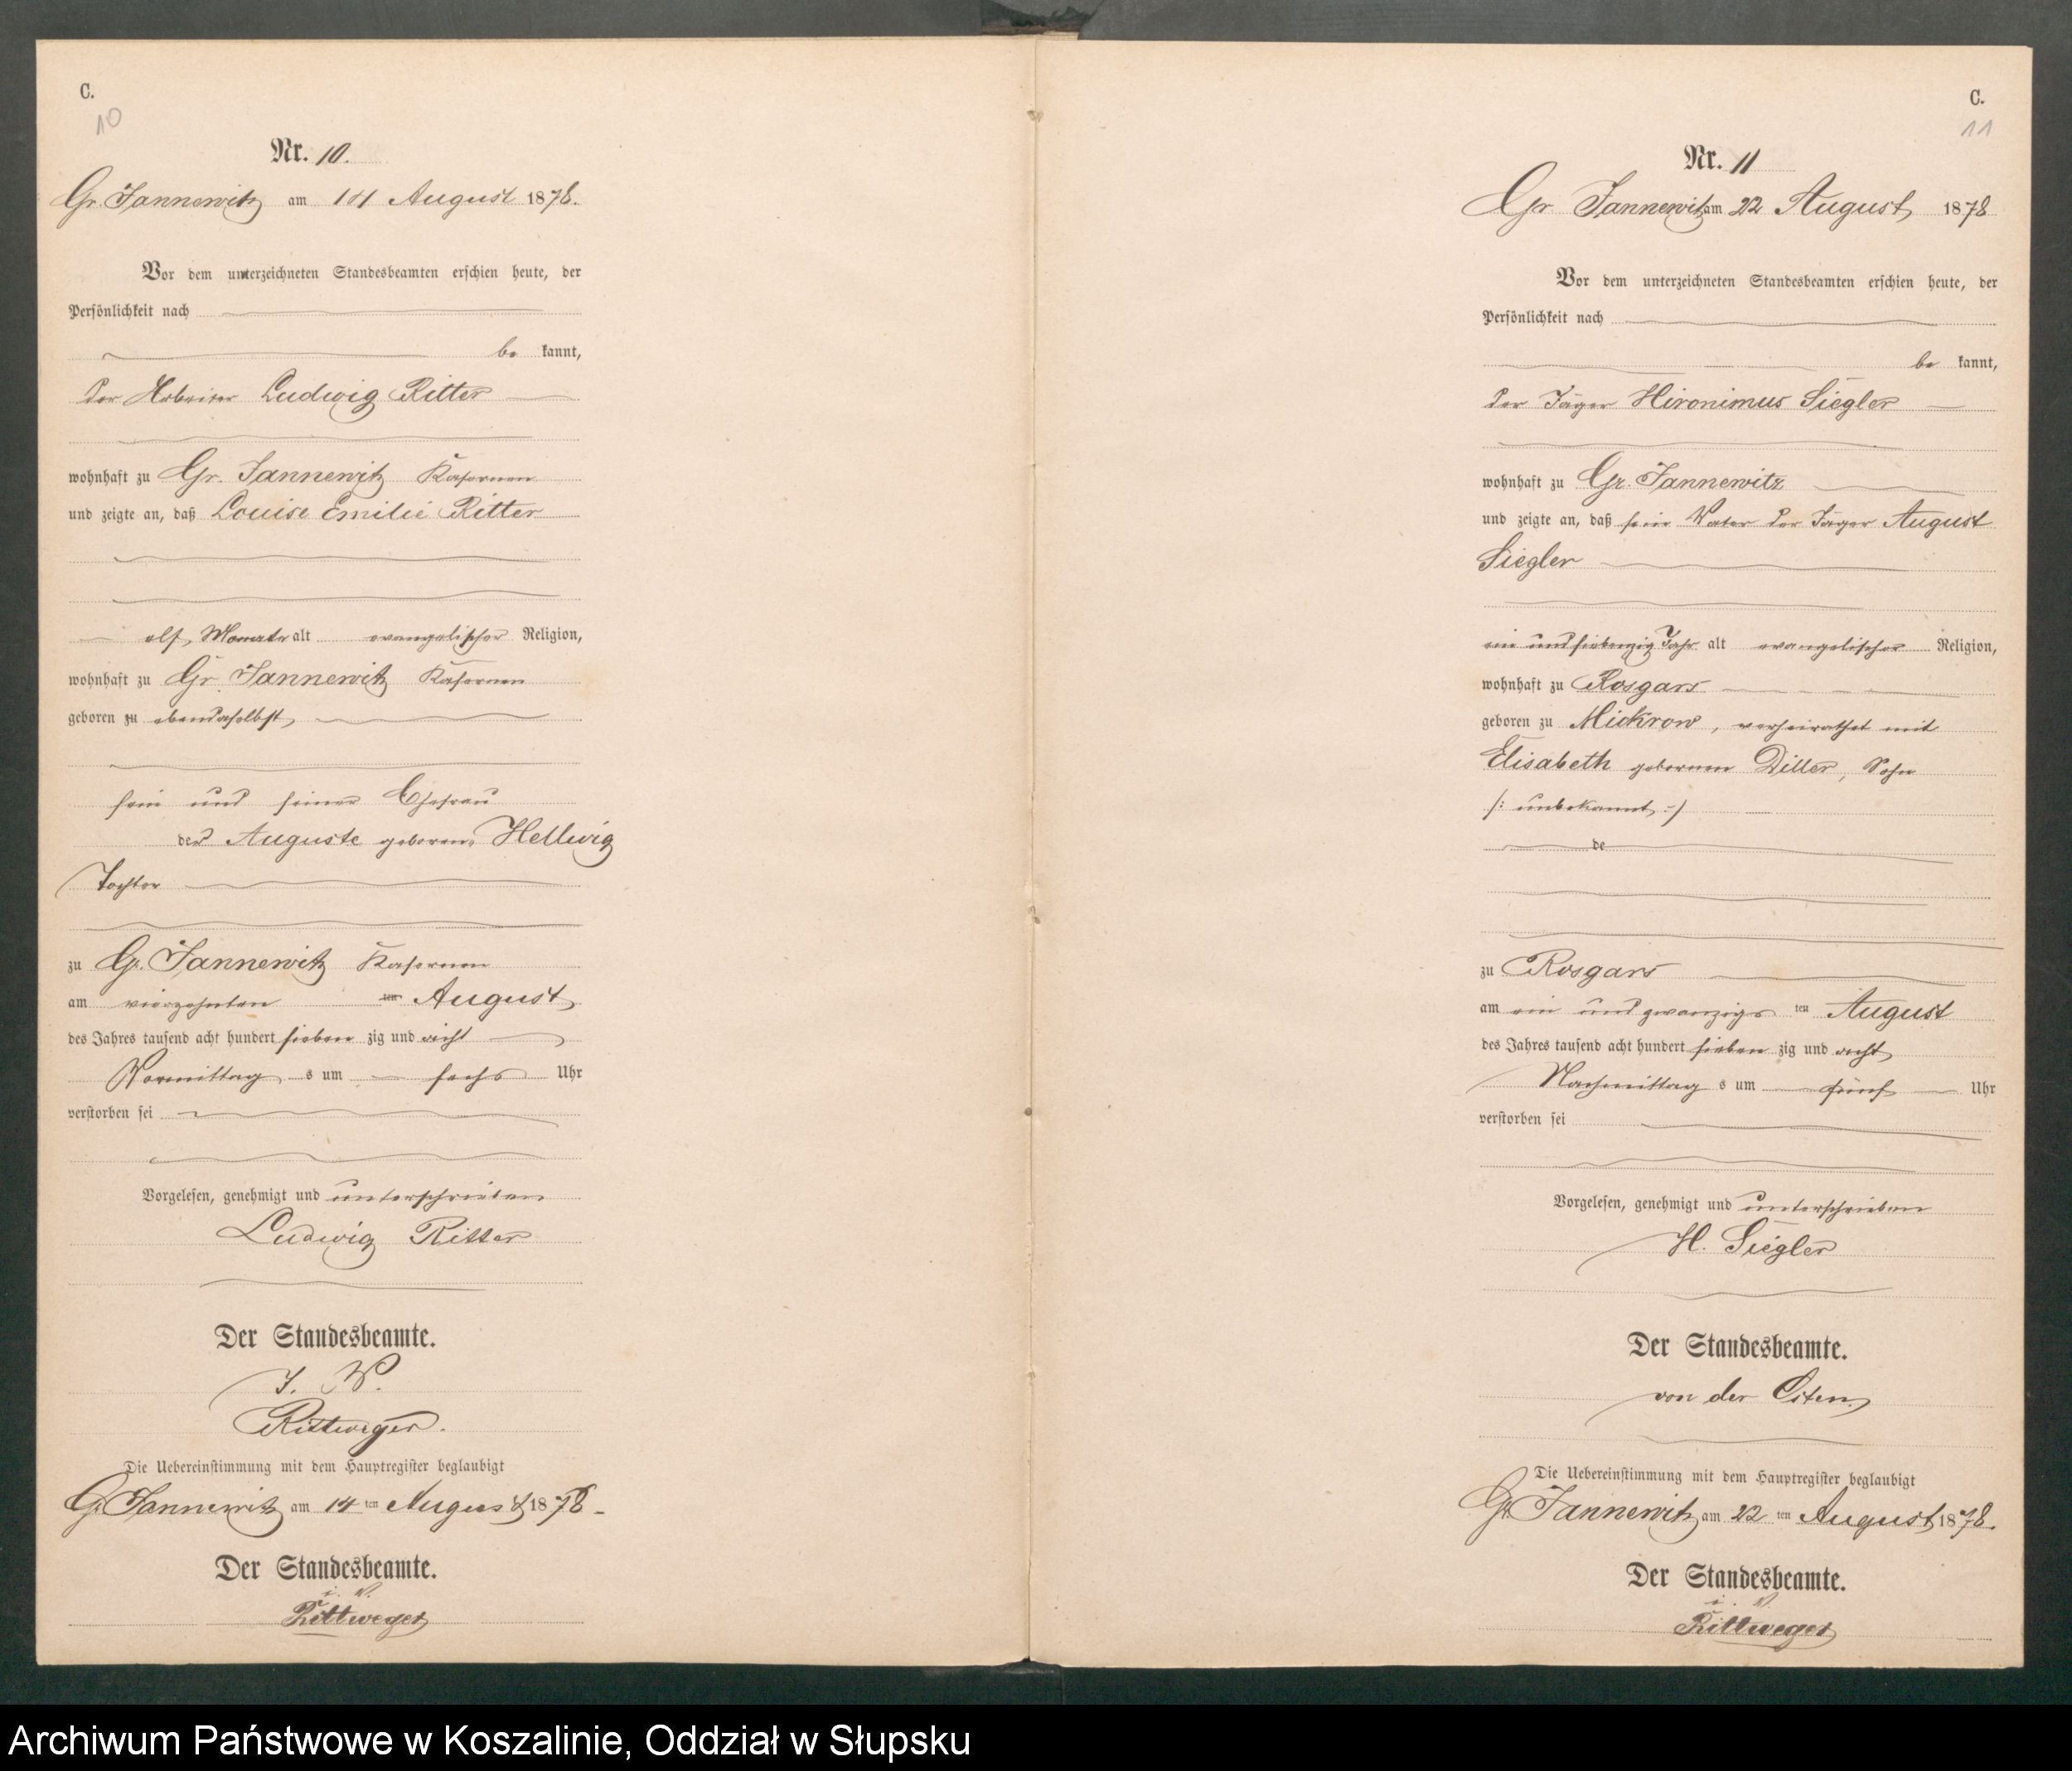 C.
10
Nr. 10.
Gr. Jannewitz am 14 August 1878.
Vor dem unterzeichneten Standesbeamten erschien heute, der
Persönlichkeit nach
be kannt,
der Arbeiter Ludwig Ritter
wohnhaft zu Gr. Jannewitz Kasernen
und zeigte an, daß Louise Emilie Ritter
elf Monate alt evangelischer Religion,
wohnhaft zu Gr. Jannewitz Kasernen
geboren zu ebendaselbst,
sein und seiner Ehefrau
der Auguste geborene Hellwig
Tochter
zu Gr. Jannewitz Kasernen
am vierzehnten ten August
des Jahres tausend acht hundert sieben zig und acht
Vormittag s um sechs Uhr
verstorben sei
Vorgelesen, genehmigt und unterschrieben
Ludwig Ritter
Der Standesbeamte.
J. V.
Rittweger.
Die Uebereinstimmung mit dem Hauptregister beglaubigt
Gr. Jannewitz am 14 ten August 1878.
Der Standesbeamte.
i. V.
Rittweger
C.
11
Nr. 11
Gr Jannewitz am 22 August 1878
Vor dem unterzeichneten Standesbeamten erschien heute, der
Persönlichkeit nach
be kannt,
der Jäger Hironimus Siegler
wohnhaft zu Gr. Jannewitz
und zeigte an, daß sein Vater der Jäger August
Siegler
ein und siebenzig Jahr alt evangelischer Religion,
wohnhaft zu Rosgars
geboren zu Mickrow, verheirathet mit
Elisabeth gebornen Diller, Sohn
/: unbekannt :/
de
zu Rosgars
am ein und zwanzigs ten August
des Jahres tausend acht hundert sieben zig und acht
Nachmittag s um fünf Uhr
verstorben sei
Vorgelesen, genehmigt und unterschrieben
H. Siegler
Der Standesbeamte.
von der Osten
Die Uebereinstimmung mit dem Hauptregister beglaubigt
Gr. Jannewitz am 22 ten August 1878.
Der Standesbeamte.
i. V.
Rittweger
Archiwum Państwowe w Koszalinie, Oddział w Słupsku